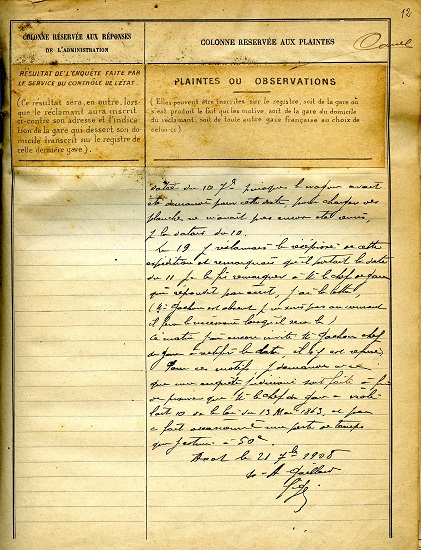 12
COLONNE RÉSERVÉE AUX RÉPONSES
DE L'ADMINISTRATION
COLONNE RESERVÉE AUX PLAINTES
RÉSULTAT DE L'ENQUÊTE FAITE PAR
LE SERVICE DU CONTRÔLE DE L'ÉTAT.
(Ce résultat sera, en outre, lors-
que le réclamant aura inscrit
ci-contre son adresse et l'indica-
tion de la gare qui dessert son do-
micile transcrit sur le registre de
celle dernière gare).
PLAINTES OU OBSERVATIONS
(Elles peuvent être inscrites sur le registre, soit de la gare où
s'est produit le fait qui les motive, soit de la gare du domicile
du réclamant, soit de toute autre gare française au choix de
celui-ci)
datée du 10 7bre puisque le wagon avait
été demandé pour cette date, pour charger des
planches ne m'avait pas encore été remis,
je la datais du 10.
Le 19 je réclamais le récépissé de cette
expédition et remarquais qu'il portait la date
du 11 je le fis remarquer à Mr le chef de gare
qui répondit
(Mr Gachon est absent je ne suis pas au courant
il fera le nécessaire lorsqu'il sera là)
Ce matin j'ai encore invité Mr Gachon chef
de gare à rectifier la date, il s'y est refusé
Pour ce motif, je demande
que une enquête soit faite à fin
de prouver que Mr le chef de gare a
10 de la loi du 13 1863, et par
ce fait occasionné une perte de temps
que j'estime à 50
le 21 7bre 1908
A Gaillard